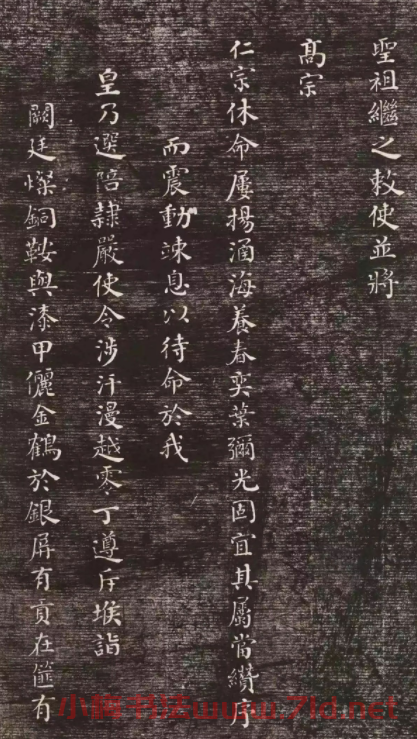 聖祖繼之敕使並將
高宗
仁宗休命屢揚涵海養春奕葉彌光固宜其屬當纘乃
而震動竦息以待命於我
皇乃選陪隷嚴使令涉汗漫越零丁遵斥堠詣
闕廷燦銅鞍與漆甲儷金鶴於銀屏有貢在篚有
小鹏书法www.7ld.net